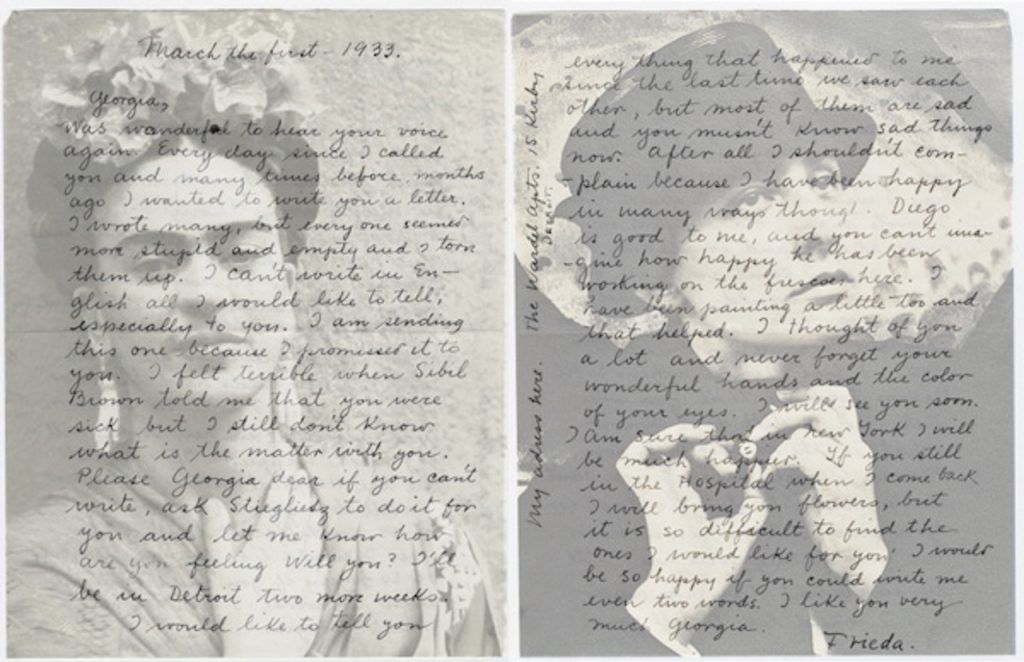 March the first - 1933.
Georgia,
Was wonderful to hear your voice
again. Every day since I called
you and many times before months
ago I wanted to write you a letter.
I wrote many, but every one seemed
more stupid and empty and I torn
them up. I can't write in En-
glish all I would like to tell,
especially to you. I am sending
this one because I promised it to
you. I felt terrible when Sibil
Brown told me that you were
sick but I still don't know
what is the matter with you.
Please Georgia dear if you can't
write, ask Stiegliesz to do it for
you and let me know how
are you feeling will you? I'll
be in Detroit two more weeks.
I would like to tell you
every thing that happened to me
since the last time we saw each
other, but most of them are sad
and you mustn't know sad things
now. After all I shouldn't com-
-plain because I have been happy
in many ways though. Diego
is good to me, and you can't ima-
-gine how happy he has been
working on the frescoes here. I
have been painting a little too and
that helped. I thought of you
a lot and never forget your
wonderful hands and the color
of your eyes. I will see you soon.
I am sure that in new York I will
be much happier. If you still
in the Hospital when I come back
I will bring you flowers, but
it is so difficult to find the
ones I would like for you. I would
be so happy if you could write me
even two words. I like you very
much Georgia.
Frieda.
My adress here. The Wardell Apts. 15 Kirby
Detroit.